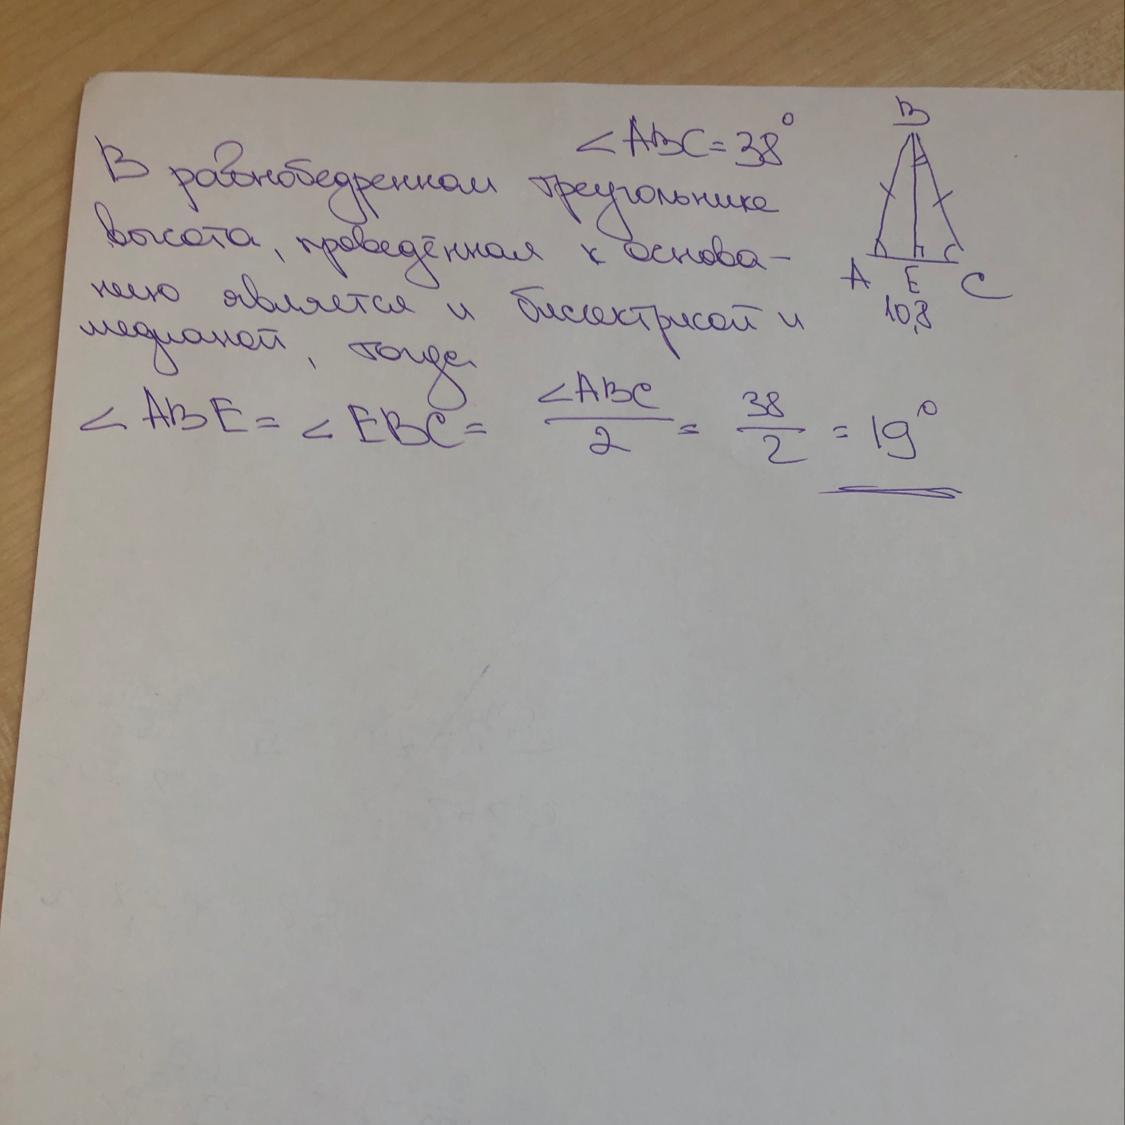 ∠ABC = 38°
В равнобедренном треугольнике
высота, проведённая к основа-
нию является и биссектрисой и
медианой, тогда
∠ABE = ∠EBC = ∠ABC/2 = 38/2 = 19°
B
A E C
10,8